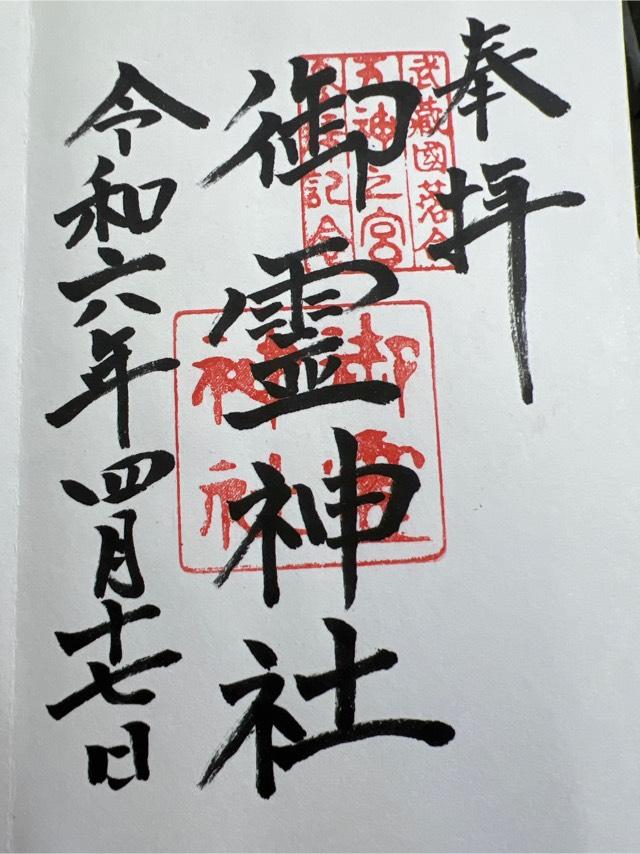 奉拝
武蔵國落合
神之宮
記念
御霊神社
御霊
神社
令和六年四月十七日